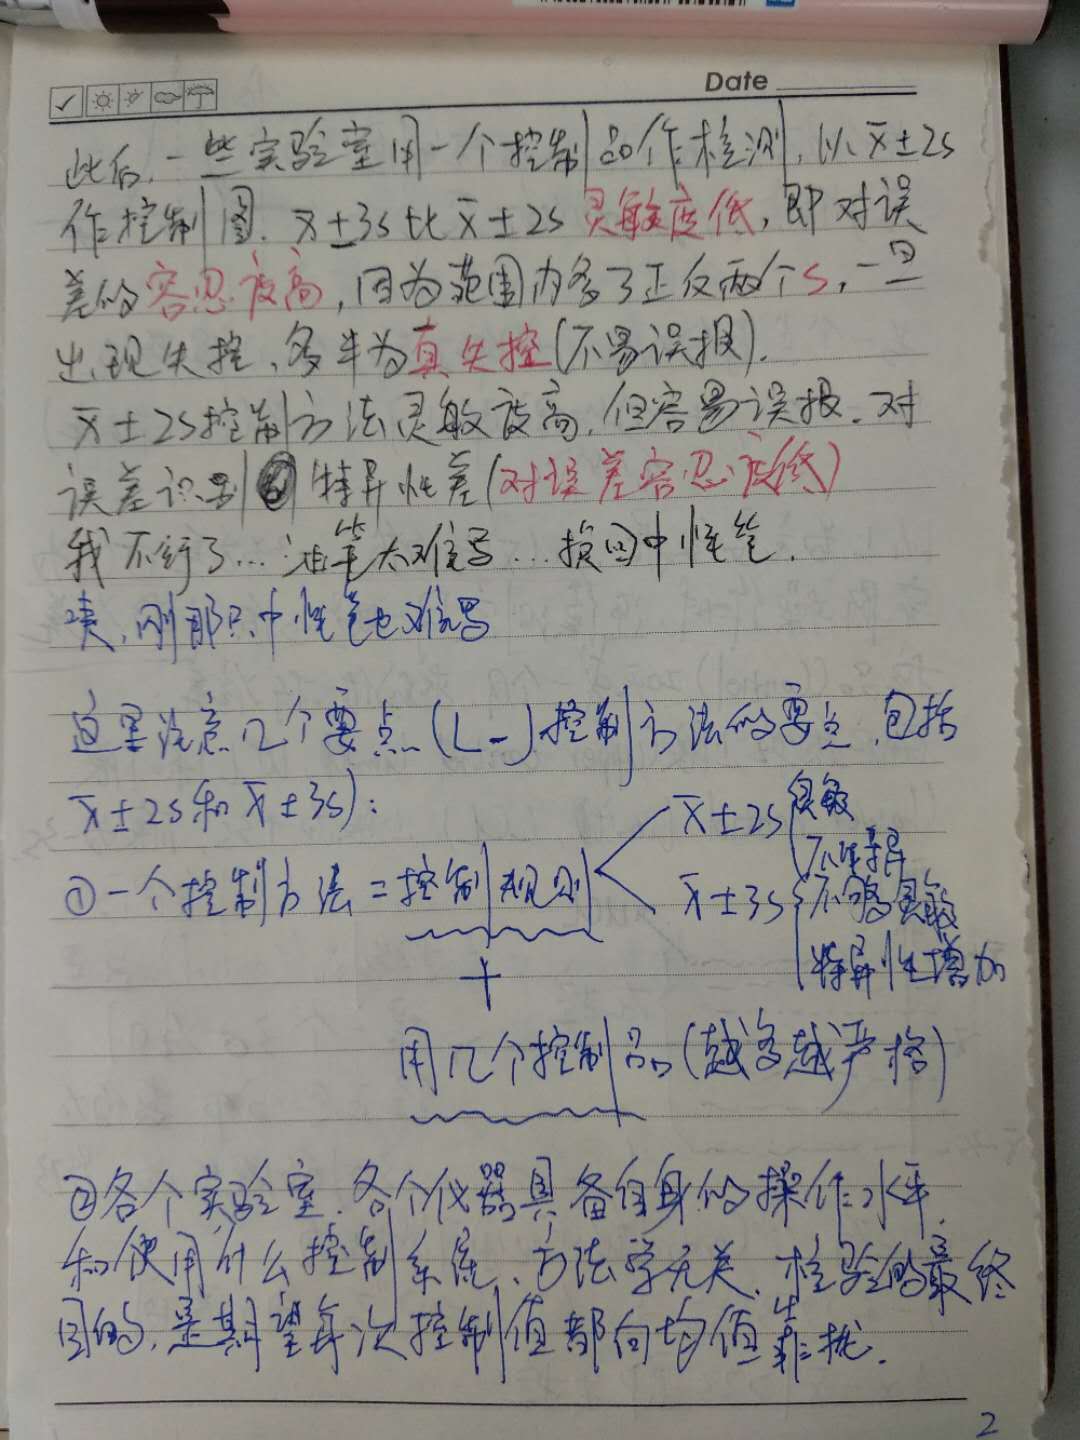 Date
此后,一些实验室用一个控制品作检测,以x̄±2s
作控制图. x̄±3s比x̄±2s灵敏度低,即对误
差的容忍度高,因为范围内多了正反两个s,一旦
出现失控,多半为真失控(不易误报).
x̄±2s控制方法灵敏度高,但容易误报.对
误差识别特异性差(对误差容忍度低)
我不行了...油笔太难写...换回中性笔.
咦,刚那只中性笔也难写
这里注意几个要点(L-J控制方法的要点,包括
x̄±2s和x̄±3s):
①一个控制方法=控制规则
x̄±2s 灵敏
不够特异
x̄±3s 不够灵敏
特异性增加
+
用几个控制品(越多越严格)
②各个实验室.各个仪器具备自身的操作水平,
和使用什么控制系统、方法学无关.检验的最终
目的,是期望每次控制值都向均值靠拢.
2